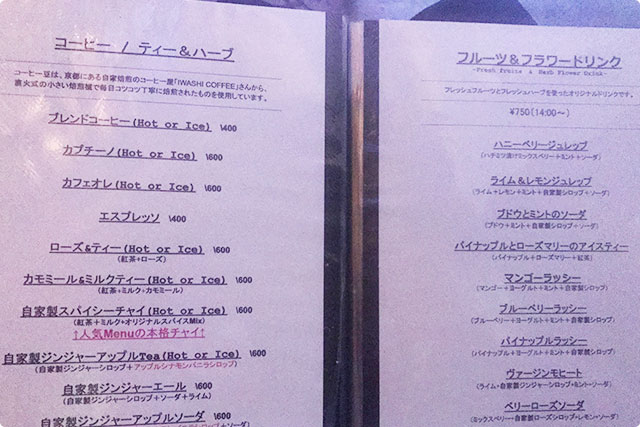 コーヒー / ティー＆ハーブ
コーヒー豆は、京都にある自家焙煎のコーヒー屋「IWASHI COFFEE」さんから、
直火式の小さい焙煎機で毎日コツコツ丁寧に焙煎されたものを使用しています。
ブレンドコーヒー(Hot or Ice) \400
カプチーノ(Hot or Ice) \600
カフェオレ(Hot or Ice) \600
エスプレッソ \400
ローズ&ティー(Hot or Ice) \600
(紅茶+ローズ)
カモミール&ミルクティー(Hot or Ice) \600
(紅茶+ミルク+カモミール)
自家製スパイシーチャイ(Hot or Ice) \600
(紅茶+ミルク+オリジナルスパイスMix)
↑人気Menuの本格チャイ↑
自家製ジンジャーアップルTea(Hot or Ice) \600
(自家製ジンジャーシロップ+アップルシナモンバニラシロップ)
自家製ジンジャーエール \600
(自家製ジンジャーシロップ+ソーダ+ライム)
自家製ジンジャーアップルソーダ \600
フルーツ＆フラワードリンク
-Fresh fruits & Herb Flower Drink-
フレッシュフルーツとフレッシュハーブを使ったオリジナルドリンクです。
¥750(14:00～)
ハニーベリージュレップ
(ハチミツ漬けミックスベリー+ミント+ソーダ)
ライム＆レモンジュレップ
(ライム+レモン+ミント+自家製シロップ+ソーダ)
ブドウとミントのソーダ
(ブドウ+ミント+自家製シロップ+ソーダ)
パイナップルとローズマリーのアイスティー
(パイナップル+ローズマリー+紅茶)
マンゴーラッシー
(マンゴー+ヨーグルト+ミント+自家製シロップ)
ブルーベリーラッシー
(ブルーベリー+ヨーグルト+ミント+自家製シロップ)
パイナップルラッシー
(パイナップル+ヨーグルト+ミント+自家製シロップ)
ヴァージンモヒート
(ライム+自家製ジンジャーシロップ+ミント+ソーダ)
ベリーローズソーダ
(ミックスベリー+自家製ローズシロップ+レモン+ソーダ)